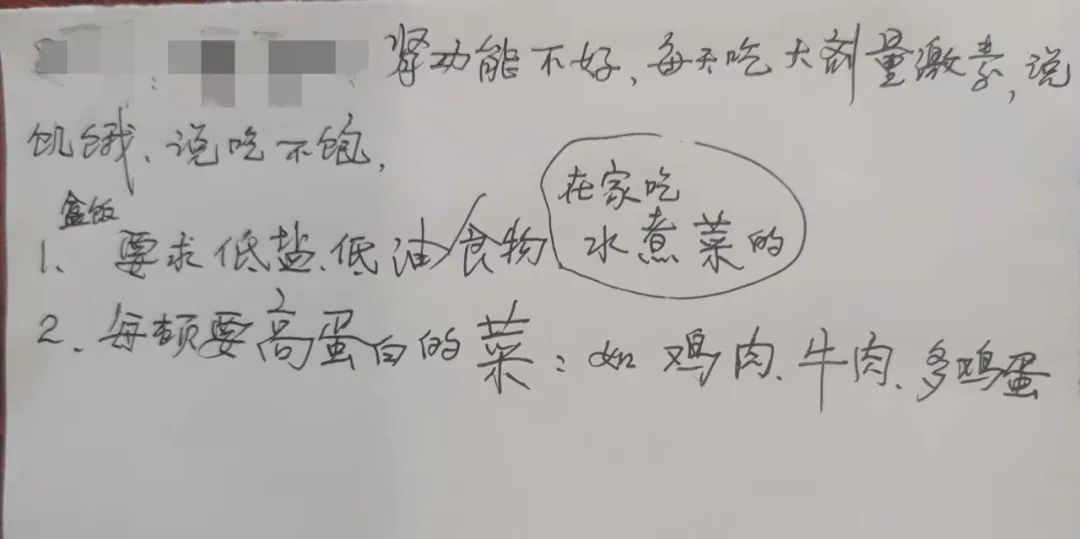 : 肾功能不好,每天吃大剂量激素,说
饥饿、说吃不饱,
盒饭
1、要求低盐、低油食物
在家吃
水煮菜的
2、每顿要高蛋白的菜:如鸡肉、牛肉、多鸡蛋